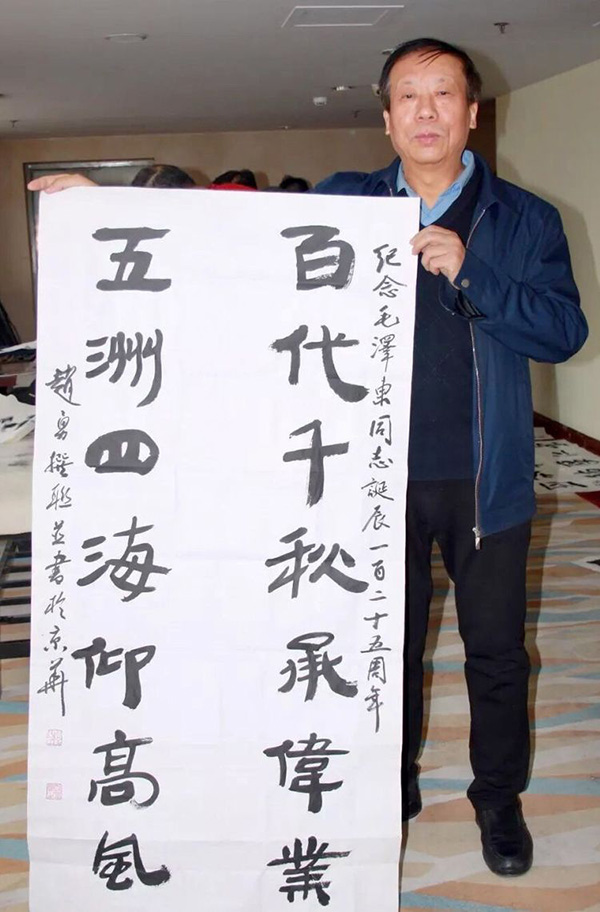 纪念毛澤東同志誕辰一百二十五周年
百代千秋承偉業
五洲四海仰高風
趙勇撰聯並書於京華